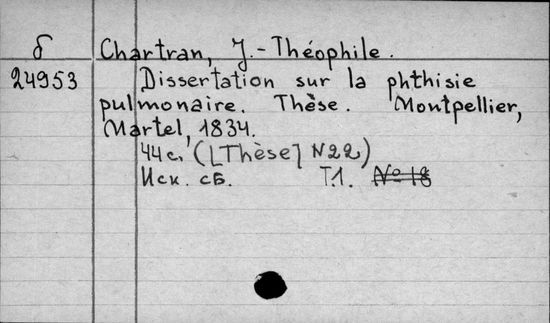 б Chartran, J.-Théophile.
24953 Dissertation sur la phthisie
pulmonaire. Thèse. Montpellier,
Martel, 1834.
44 с. ([Thèse] N22)
Иск. сб. Т.1. №18